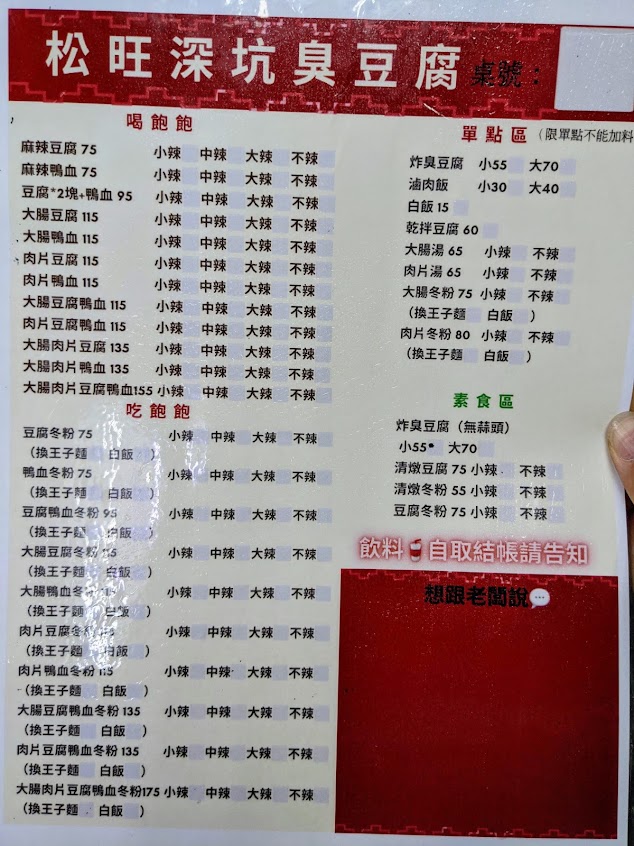 松旺深坑臭豆腐 桌號：
喝飽飽
麻辣豆腐 75 小辣 中辣 大辣 不辣
麻辣鴨血 75 小辣 中辣 大辣 不辣
豆腐*2塊+鴨血 95 小辣 中辣 大辣 不辣
大腸豆腐 115 小辣 中辣 大辣 不辣
大腸鴨血 115 小辣 中辣 大辣 不辣
肉片豆腐 115 小辣 中辣 大辣 不辣
肉片鴨血 115 小辣 中辣 大辣 不辣
大腸豆腐鴨血 115 小辣 中辣 大辣 不辣
肉片豆腐鴨血 115 小辣 中辣 大辣 不辣
大腸肉片豆腐 135 小辣 中辣 大辣 不辣
大腸肉片鴨血 135 小辣 中辣 大辣 不辣
大腸肉片豆腐鴨血155 小辣 中辣 大辣 不辣
吃飽飽
豆腐冬粉 75 小辣 中辣 大辣 不辣
（換王子麵 白飯 ）
鴨血冬粉 75 小辣 中辣 大辣 不辣
（換王子麵 白飯 ）
豆腐鴨血冬粉 95 小辣 中辣 大辣 不辣
（換王子麵 白飯 ）
大腸豆腐冬粉 小辣 中辣 大辣 不辣
（換王子麵 白飯 ）
大腸鴨血冬粉 小辣 中辣 大辣 不辣
（換王子麵 白飯 ）
肉片豆腐冬粉 小辣 中辣 大辣 不辣
（換王子麵 白飯 ）
肉片鴨血冬粉 115 小辣 中辣 大辣 不辣
（換王子麵 白飯 ）
大腸豆腐鴨血冬粉 135 小辣 中辣 大辣 不辣
（換王子麵 白飯 ）
肉片豆腐鴨血冬粉 135 小辣 中辣 大辣 不辣
（換王子麵 白飯 ）
大腸肉片豆腐鴨血冬粉175 小辣 中辣 大辣 不辣
（換王子麵 白飯 ）
單點區（限單點不能加料
炸臭豆腐 小55 大70
滷肉飯 小30 大40
白飯 15
乾拌豆腐 60
大腸湯 65 小辣 不辣
肉片湯 65 小辣 不辣
大腸冬粉 75 小辣 不辣
（換王子麵 白飯 ）
肉片冬粉 80 小辣 不辣
（換王子麵 白飯 ）
素食區
炸臭豆腐（無蒜頭）
小55 大70
清燉豆腐 75 小辣 不辣
清燉冬粉 55 小辣 不辣
豆腐冬粉 75 小辣 不辣
飲料自取結帳請告知
想跟老闆說